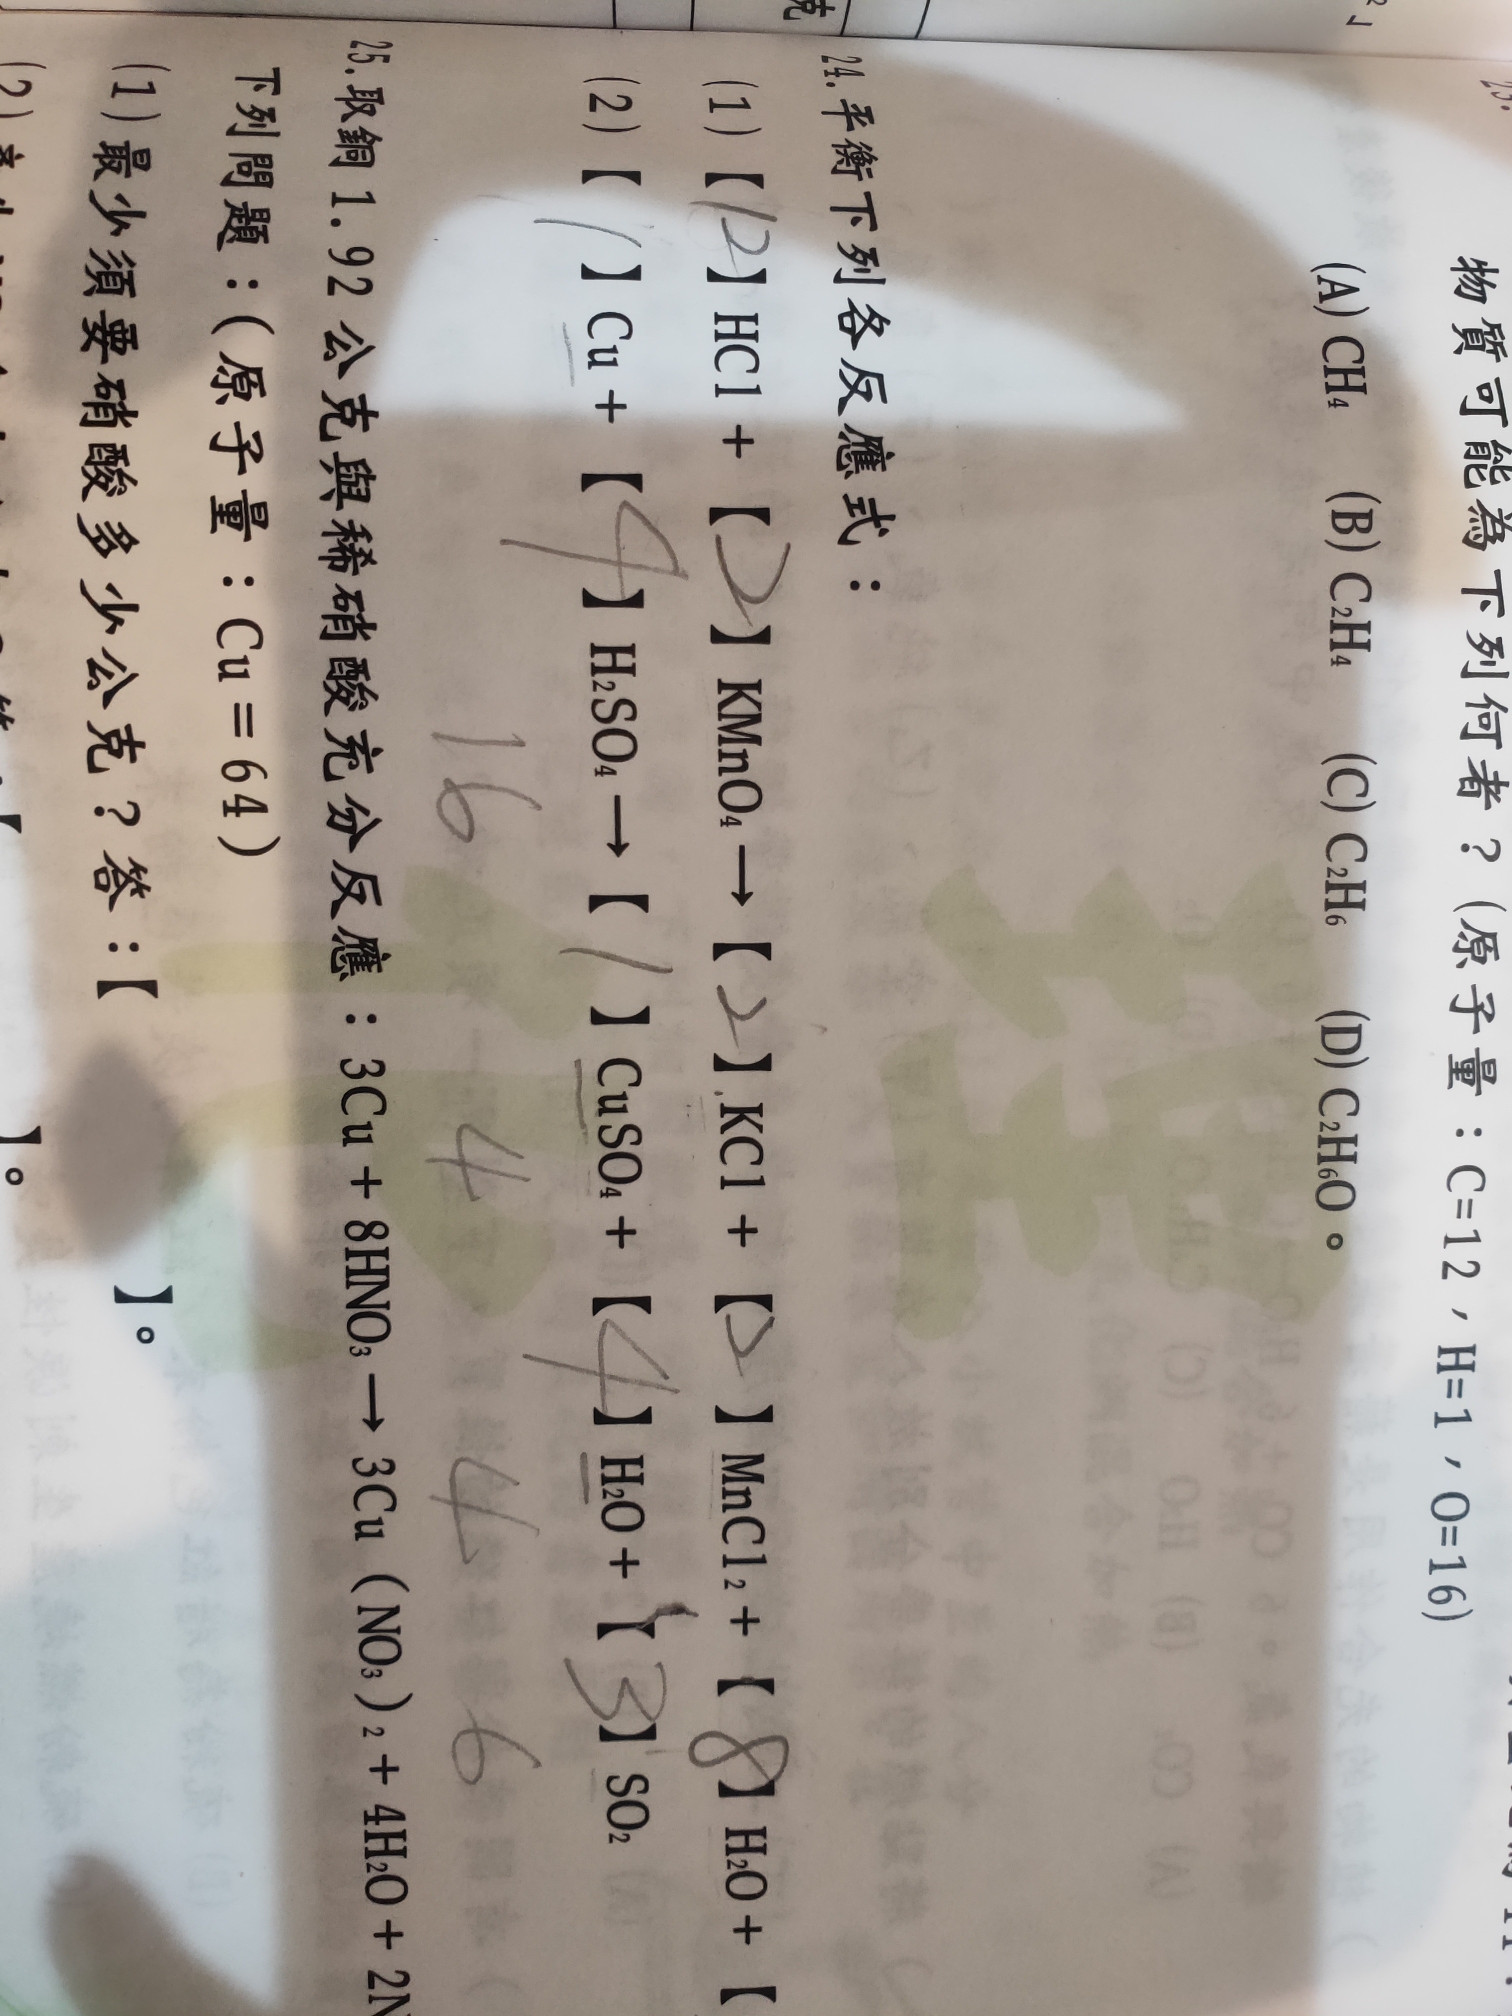 物質可能為下列何者？(原子量：C=12，H=1，O=16)
(A) CH₄ (B) C₂H₄ (C) C₂H₆ (D) C₂H₆O。
24.平衡下列各反應式：
(1)【12】HCl+【2】KMnO₄→【2】KCl+【2】MnCl₂+【8】H₂O+【
(2)【1】Cu+【4】H₂SO₄→【1】CuSO₄+【4】H₂O+【3】SO₂
16 4 4 6
25.取銅1.92公克與稀硝酸充分反應：3Cu+8HNO₃→3Cu(NO₃)₂+4H₂O+2N
下列問題：(原子量：Cu=64)
(1)最少須要硝酸多少公克？答：【 】。
(2)